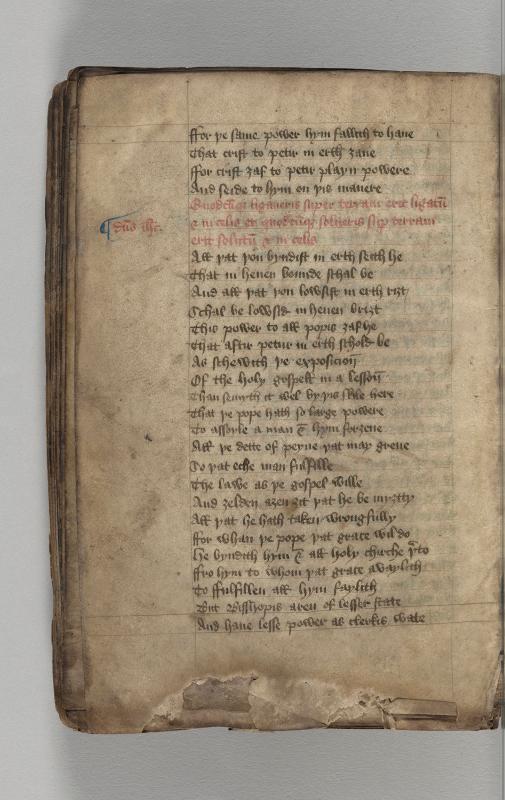 ffor þe same power hym fallith to haue
That crist to petir in erth ȝaue
ffor crist ȝaf to petir playn powere
And seide to hym on þis manere
Quodcūqȝ ligaueris super terram erit ligatū
dn̄s ih̄c. & in celis et quodcūqȝ solueris sup terram
erit solutū & in celis
All þat þou byndist in erth seith he
That in heuen bounde schal be
And all þat þou lowsist in erth riȝt
Schal be lowsid in heuen briȝt
This power to all popis ȝaf he
That aftir petur in erth schold be
As schewith þe exposicioū
Of the holy gospell in a lessoū
Than semyth it wel by þis skile here
That þe pope hath so large powere
To assoyle a man & hym forȝeue
All þe dette of peyne þat may greue
So þat eche man fulfille
The lawe as þe gospel wille
And ȝelden aȝen ȝit þat he be myȝtty
All þat he hath taken wrongfully
ffor whan þe pope þat grace wil do
he byndith hym & all holy chirche þ̄to
ffro hym to whom þat grace avaylith
To ffulfillen all hym faylith
But Bisshopis aren of lesser state
And haue lesse power as clerkis wate